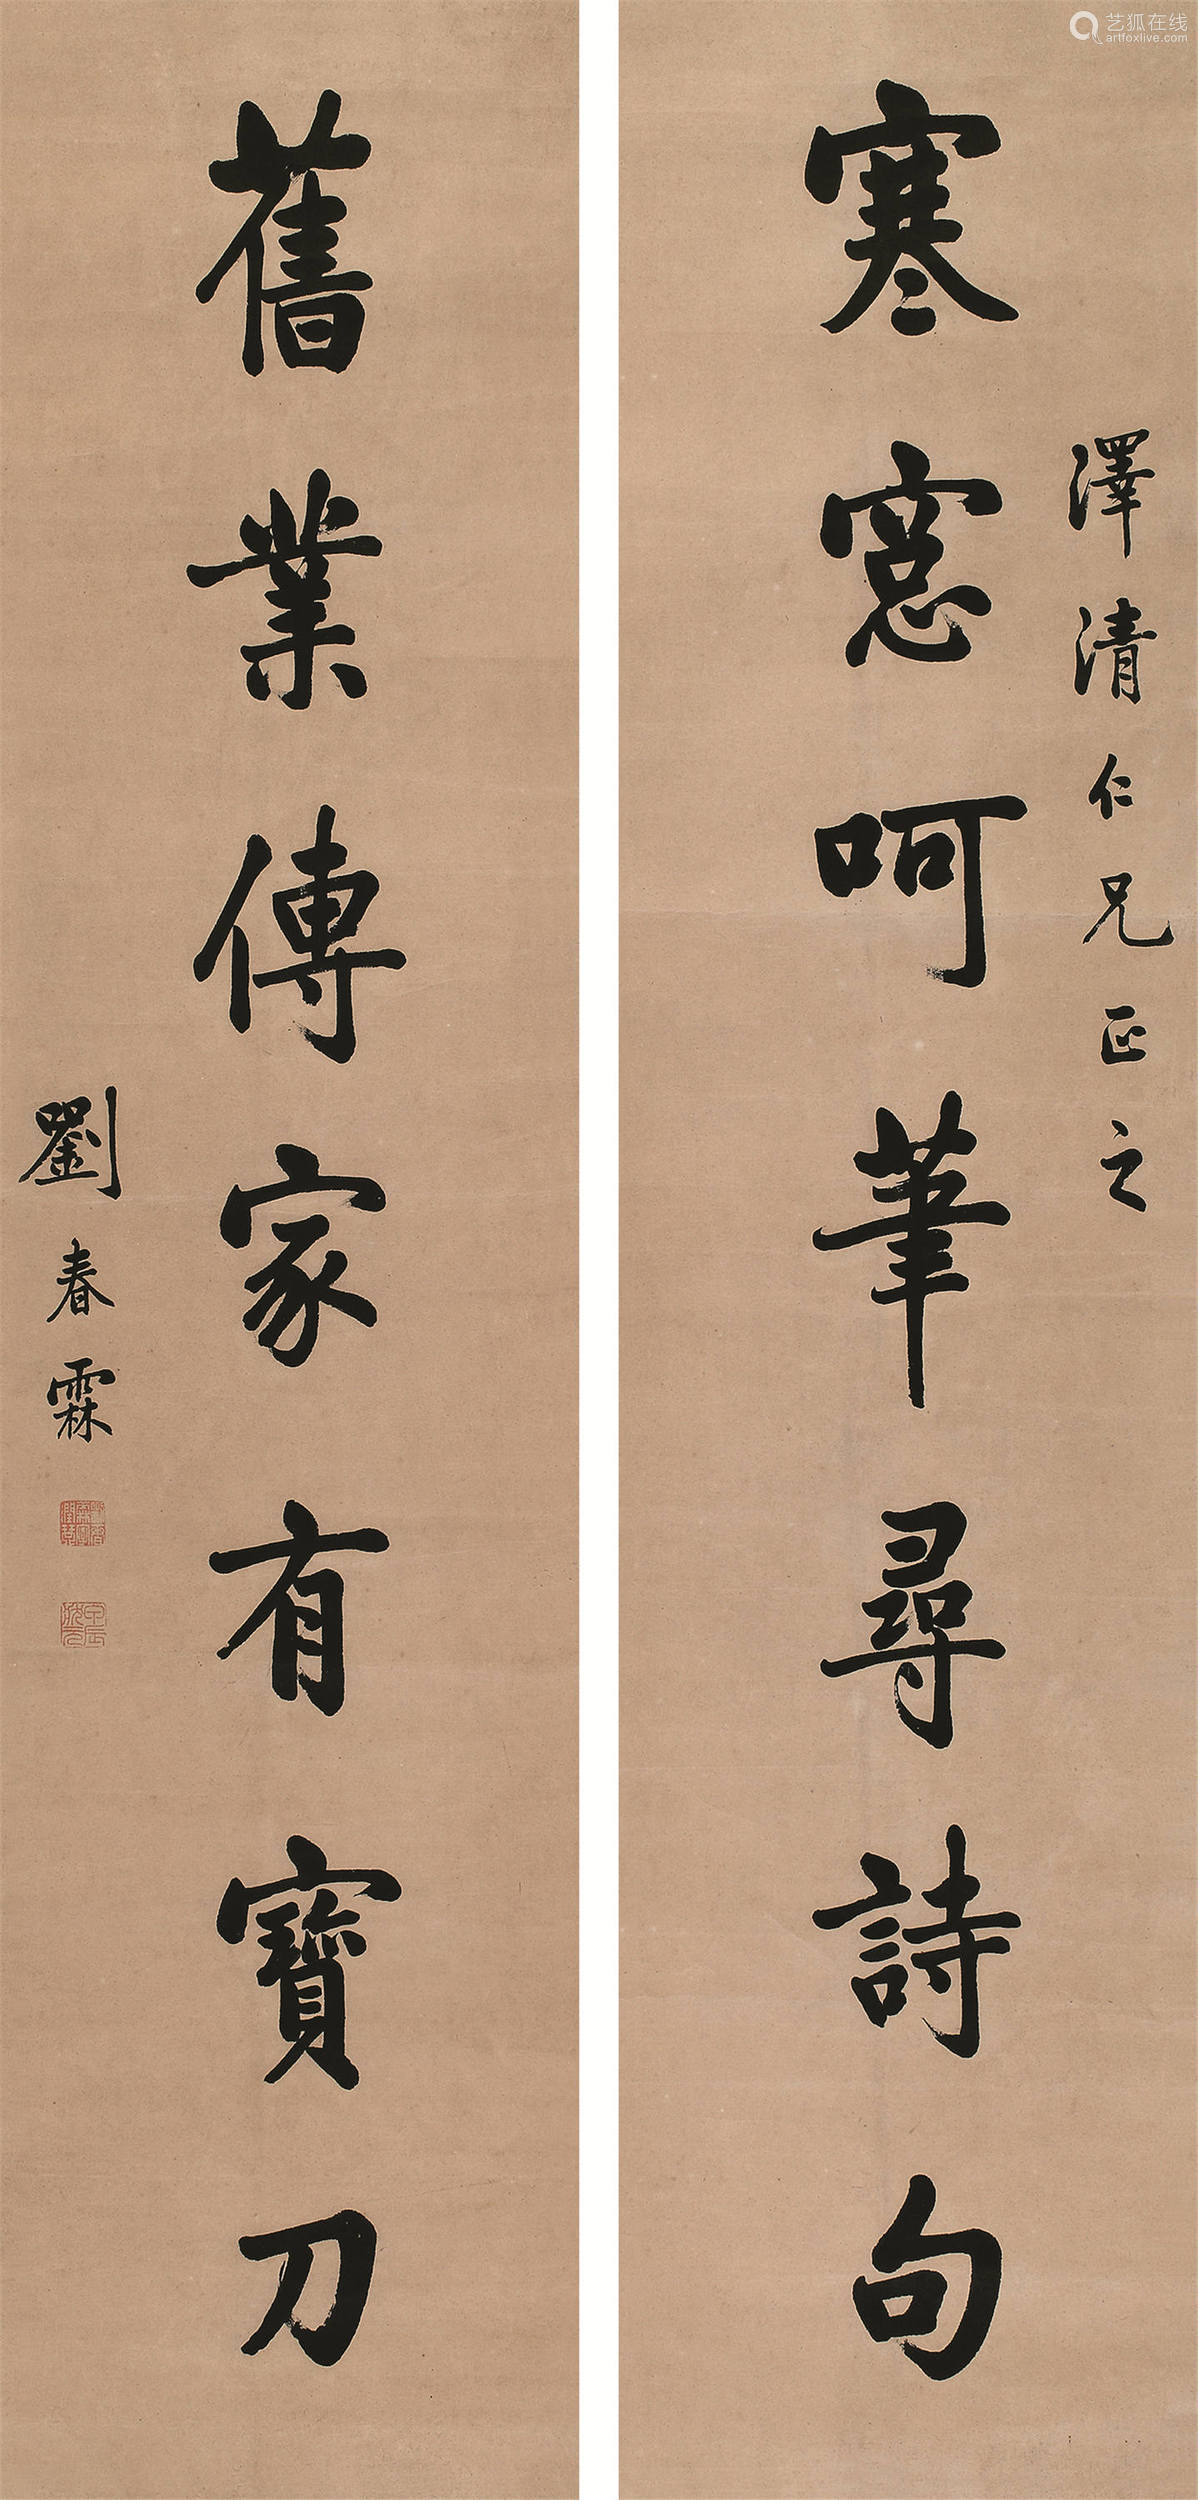 澤清仁兄正之
寒窓呵筆尋詩句
舊業傳家有寶刀
劉春霖
艺狐在线
artfoxlive.com